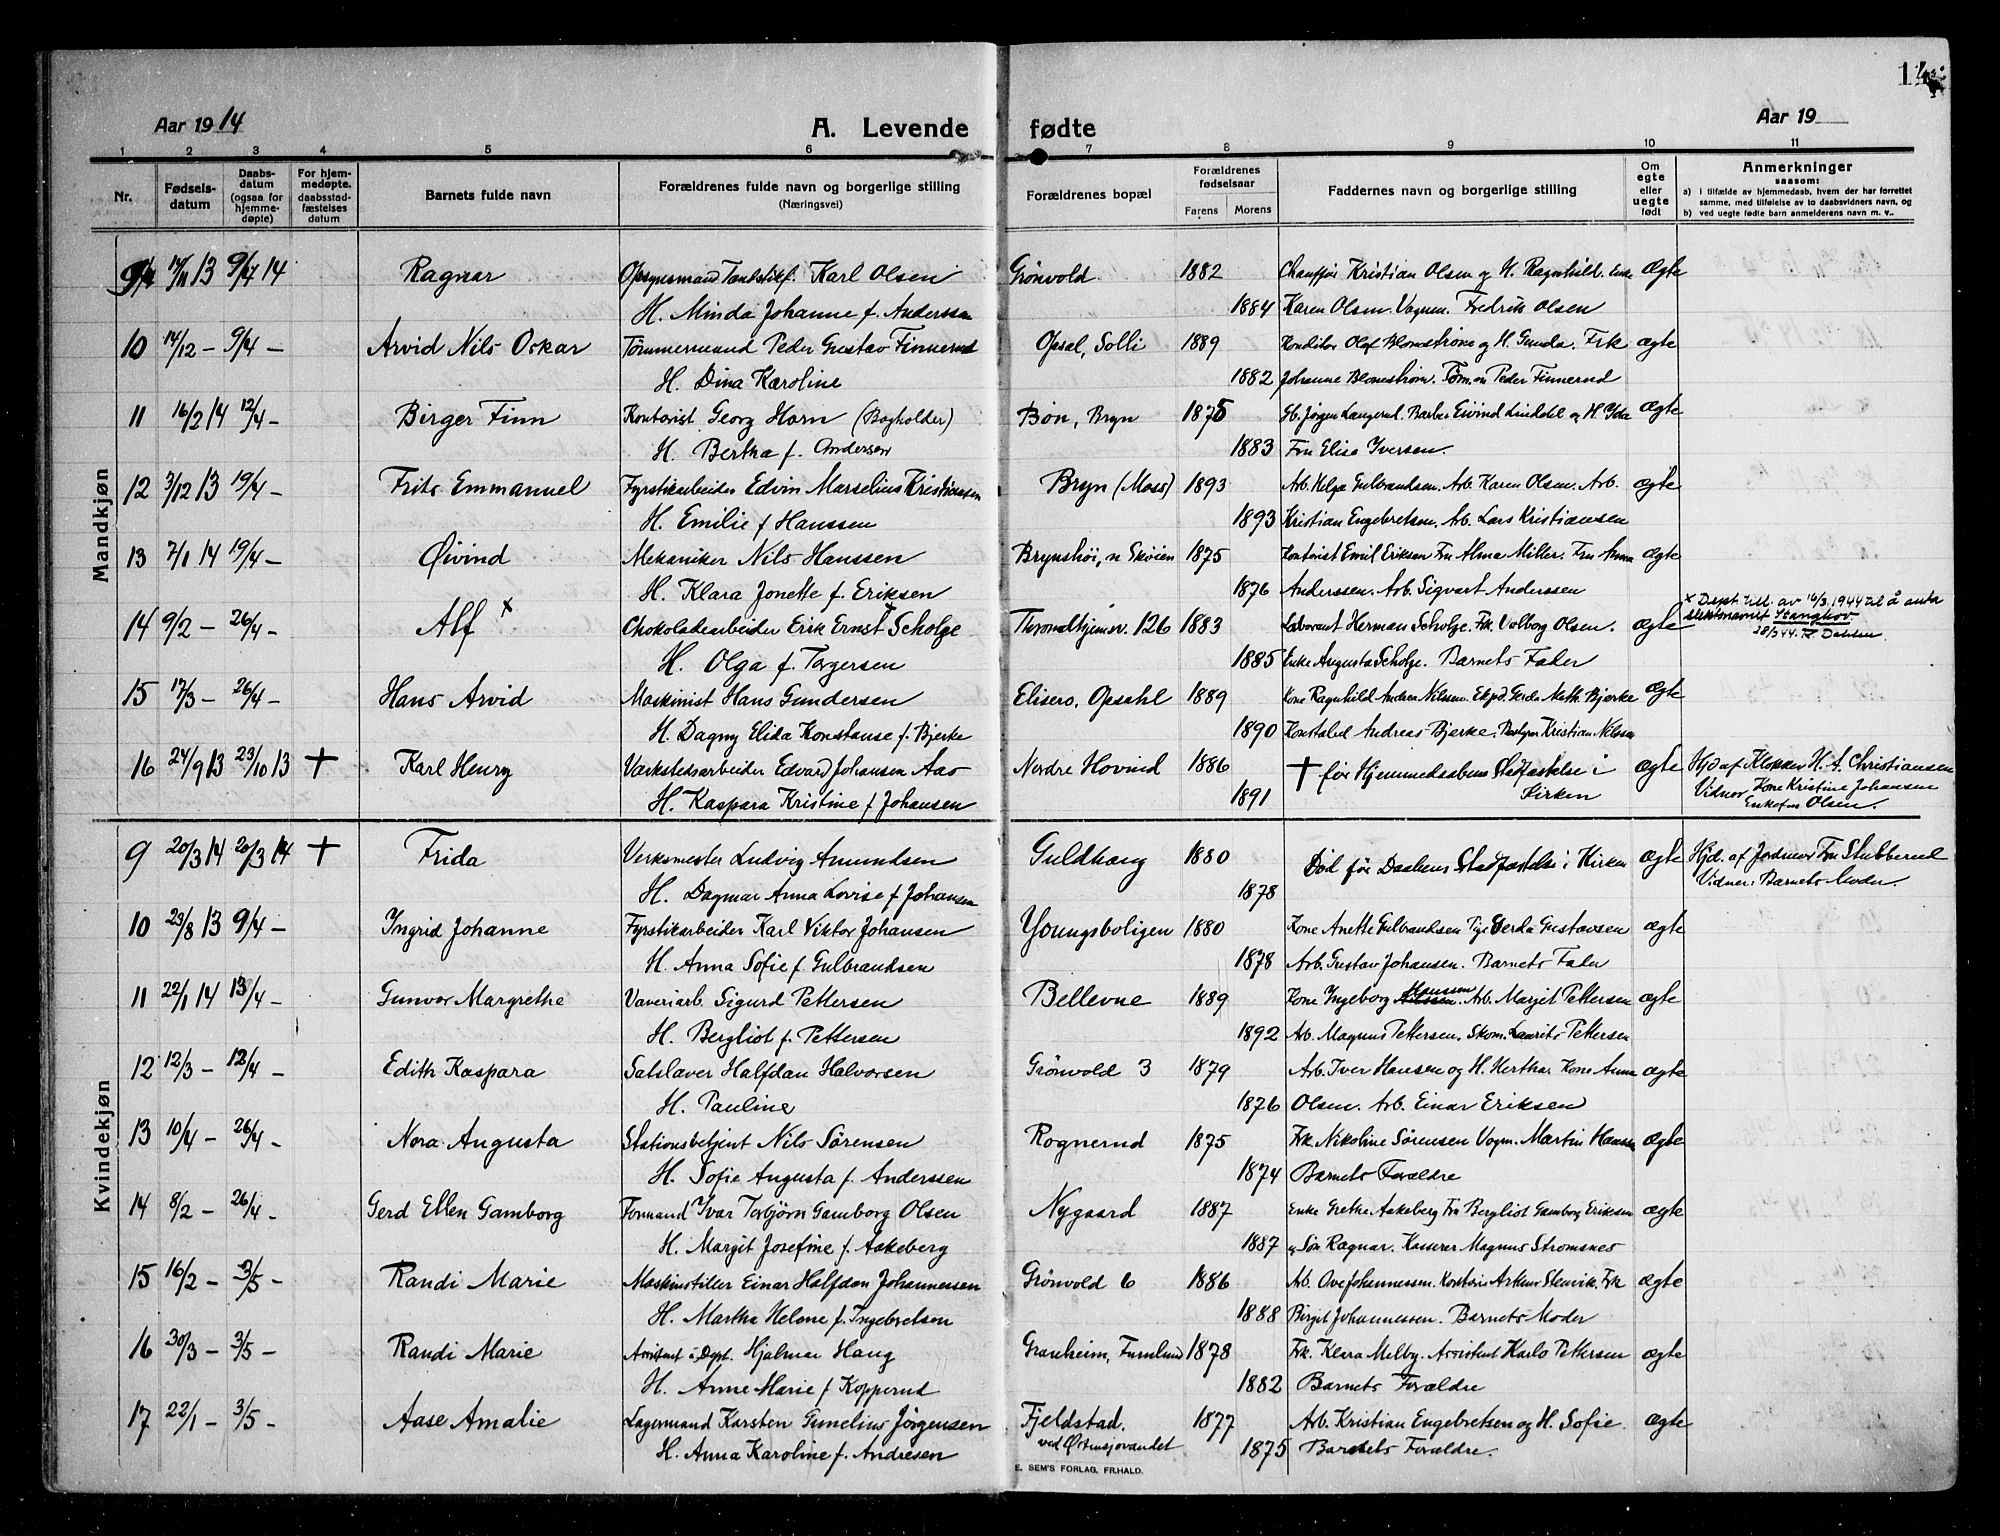 14
Aar 1914
A. Levende fødte
Aar 19
1 2 3 4 5 6 7 8 9 10 11
Nr.
Fødsels-datum
Daabs-datum (ogsaa for hjemme-døpte)
For hjem-medøpte. daabsstad-fæstelses datum
Barnets fulde navn
Forældrenes fulde navn og borgerlige stilling (Næringsvei)
Forældrenes bopæl
Forældrenes fødselsaar
Farens Morens
Faddernes navn og borgerlige stilling
Om egte eller uegte født
Anmerkninger saasom:
a) i tilfælde av hjemmedaab, hvem der har forrettet samme, med tilføielse av to daabsvidners navn, og
b) ved uegte fødte barn anmelderens navn m. v..
Mandkjøn
9 17/11 13 9/4 14 Ragnar Opsynsmand Tændstikf. Karl Olsen Grönvold 1882 Chauffør Kristian Olsen og H. Ragnhild. Enke Ægte
H. Minda Johanne f. Anderssen 1884 Karen Olsen. Vognm. Fredrik Olsen
10 14/12 – 9/4 – Arvid Nils Oskar Tömmermand Peder Gustav Finnerud Opsal, Solli 1889 Konditor Olaf Blomstrøm og H. Gunda. Frk ægte
H. Dina Karoline 1882 Johanne Blomstrøm. Tømm. Peder Finnerud
11 16/2 14 12/4 – Birger Finn Kontorist Georg Horn (Bogholder) Bøn, Bryn 1875 Jørgen Langerud. Barber Eivind Lindahl og H Ida Ægte
H. Bertha f. Andersen 1883 Fru Elisa Iversen.
12 3/12 13 19/4 – Frits Emmanuel Fyrstikarbeider Edvin Marselius Kristiansen Bryn (Moss) 1893 Arb. Helga Gulbrandsen. Arb. Karen Olsen. Arb. Ægte
H. Emilie f Hanssen 1893 Kristian Engebretsen. Arb. Lars Kristiansen
13 7/1 14 19/4 – Øivind Mekaniker Nils Hanssen Brynshøi, n Skøien 1875 Kontorist Emil Eriksen Fru Alma Miller. Fru Anna Ægte
H. Klara Jonette f. Eriksen 1876 Anderssen. Arb. Sigvart Anderssen
14 9/2 – 26/4 – Alf x Chokoladearbeider Erik Ernst Scholze Throndhjemsv. 126 1883 Laborant Herman Scholze. Frk. Valborg Olsen. Ægte x Dept. till. av 16/3.1944 til å anta slektsnavnet Stanghov 28/3 44. Dahlen.
H. Olga f. Torgersen 1885 Enke Augusta Scholze. Barnets Fader
15 17/3 – 26/4 – Hans Arvid Maskinist Hans Gundersen Elisero, Opsahl 1889 Kone Ragnhild Andrea Nilssen. Ekspd. Gerda Math. Bjerke Ægte
H. Dagny Elida Konstanse f. Bjerke 1890 Konstabel Andreas Bjerke. Kristian Nilssen
16 24/9 13 23/10 13 + Karl Henry Værkstedsarbeider Edvard Johansen Aas Nordre Hovind 1886 + før Hjemmedaabens Stadfæstelse i Kirken ægte Hjd af Klokker H. A. Christiansen
H. Kaspara Kristine f Johansen 1891 Vidner Kone Kristine Johansen Enkefru Olsen.
Kvindekjøn
9 20/3 14 20/3 14 + Frida Verksmester Ludvig Amundsen Guldhaug 1880 Død før Daabens Stadfæstelse i Kirken ægte Hjd. af Jordmor Fru Stubberud
H. Dagmar Anna Lovise f Johansen 1878 Vidner: Barnets Moder.
10 23/8 13 9/4 – Ingrid Johanne Fyrstikarbeider Karl Viktor Johansen Youngsboligen 1880 Kone Anette Gulbrandsen Pige Gerda Gustavsen ægte
H. Anna Sofie f. Gulbrandsen 1878 Arb. Gustav Johansen. Barnets Fader
11 22/1 14 13/4 – Gunvor Margrethe Væveriarb. Sigurd Pettersen Bellevue 1889 Kone Ingeborg Hanssen. Arb. Margit Pettersen ægte
H. Bergliot f. Pettersen 1892 Arb. Magnus Pettersen. Skom. Laurits Pettersen
12 12/3 – 12/4 – Edith Kaspara Salslaver Halfdan Halvorsen Grönvold 3 1879 Arb. Iver Hansen og H. Hertha. Kone Anna ægte
H. Pauline 1876 Olsen. Arb. Einar Eriksen
13 10/4 – 26/4 – Nora Augusta Stationsbetjent Nils Sørensen Rognerud 1875 Frk. Nikoline Sørensen Vogm. Martin Hansen ægte
H. Sofie Augusta f. Anderssen 1874 Barnets Forældre
14 8/2 – 26/4 – Gerd Ellen Gamborg Formand Ivar Torbjørn Gamborg Olsen Nygaard 1887 Enke Grethe Aakeberg Fru Bergliot Gamborg Eriksen ægte
H. Margit Josefine f. Aakeberg 1887 og Søn Ragnar. Kasserer Magnus Stromsnes
15 16/2 – 3/5 – Randi Marie Maskinstiller Einar Halfdan Johannessen Grönvold 6 1886 Arb. Ove Johannessen. Kontoris Arthur Stenvik. Frk ægte
H. Martha Helene f. Ingebretsen 1888 Birgit Johannessen. Barnets Moder
16 30/3 – 3/5 – Randi Marie Assistent i Dept. Hjalmar Haug Granheim, Furulund 1878 Frk. Klara Melby. Assistent Karlo Pettersen ægte
H. Anne Marie f Kopperud 1882 Barnets Forældre
17 22/1 – 3/5 – Aase Amalie Lagermand Karsten Gunelius Jørgensen Fjeldstad. ved Østensjovandet 1877 Arb. Kristian Engebretsen og H. Sofie. ægte
H. Anna Karoline f. Andresen 1875 Barnets Forældre.
E. SEM'S FORLAG, FR.HALD.